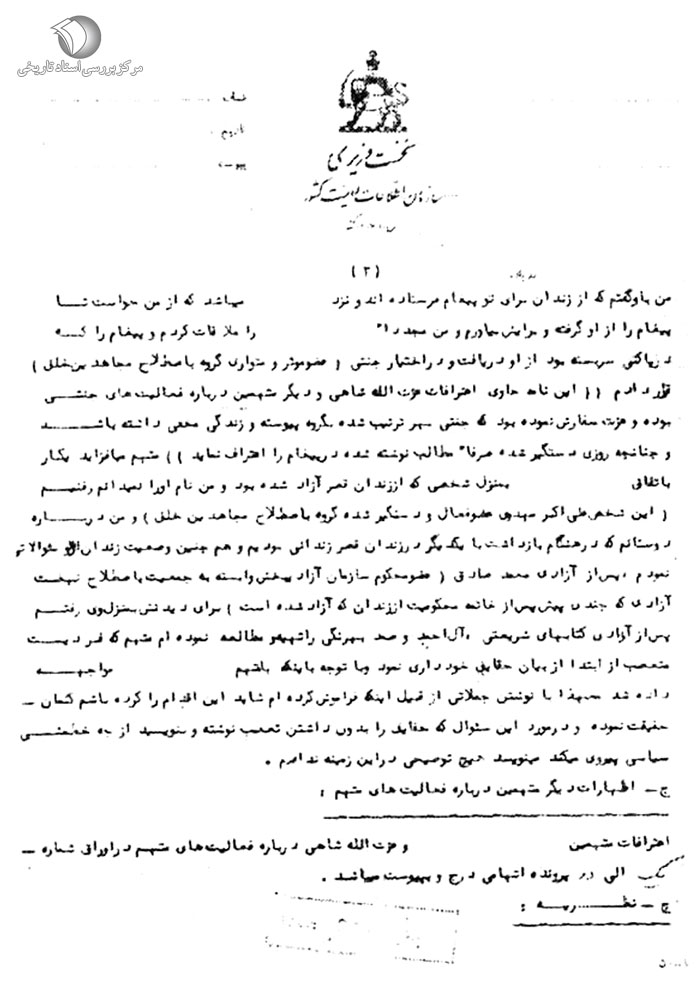 مرکز بررسی اسناد تاریخی
شماره
تاریخ
پیوست
نخست وزیری
سازمان اطلاعات و امنیت کشور
(۲)
من باو گفتم که از زندان برای تو پیغام فرستاده اند و نزد میباشد که از من خواست تا
پیغام را از او گرفته و برایش بیاورم و من مجددا" را ملاقات کردم و پیغام را که
در پاکتی سربسته بود از او دریافت و در اختیار جنتی ( عضو موثر و متواری گروه باصطلاح مجاهدین خلق )
قرار دادم (( این نامه حاوی اعترافات عزت الله شاهی و دیگر متهمین درباره فعالیت های جنتی
بوده و عزت سفارش نموده بود که جنتی بهر ترتیب شده بگروه پیوسته و زندگی مخفی داشته باشد
و چنانچه روزی دستگیر شده صرفا" مطالب نوشته شده در پیغام را اعتراف نماید )) متهم میافزاید یکبار
باتفاق بمنزل شخصی که از زندان قصر آزاد شده بود و من نام او را نمیدانم رفتیم
( این شخص علی اکبر مهدوی عضو فعال و دستگیر شده گروه باصطلاح مجاهدین خلق ) و من درباره
دوستانم که در هنگام بازداشت با یکدیگر در زندان قصر زندانی بودیم و هم چنین وضعیت زندان از او سئوالاتی
نمودم ، پس از آزادی محمد صادق ( عضو محکوم سازمان آزادیبخش وابسته به جمعیت باصطلاح نهضت
آزادی که چندی پیش پس از خاتمه محکومیت از زندان که آزاد شده است ) برای دیدنش بمنزل وی رفتم
پس از آزادی کتابهای شریعتی ، آل احمد و صمد بهرنگی را تهیه و مطالعه نموده ام متهم که فردیست
متعصب از ابتدا از بیان حقایق خودداری نمود و با توجه باینکه باتهم مواجهه
داده شد معهذا با نوشتن جملاتی از قبیل اینکه فراموش کرده ام شاید این اقدام را کرده باشم کتمان -
حقیقت نموده و در مورد این سئوال که عقاید را بدون داشتن تعصب نوشته و بنویسید از چه خط مشی
سیاسی پیروی میکند مینویسد هیچ توضیحی در این زمینه ندارم .
ج - اظهارات دیگر متهمین درباره فعالیت های متهم :
اعترافات متهمین و عزت الله شاهی درباره فعالیت های متهم در اوراق شماره -
یک الی در پرونده اتهامی درج و پیوست میباشد .
چ - نظریه :